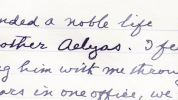 nded a noble life
other Aelyas. I fe
g him with me throu
ars in one office, we